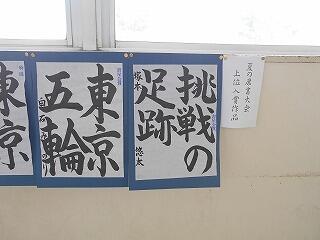 夏の席書大会
上位入賞作品
挑戦の
足跡
塚本 悠太
東京
五輪
東京